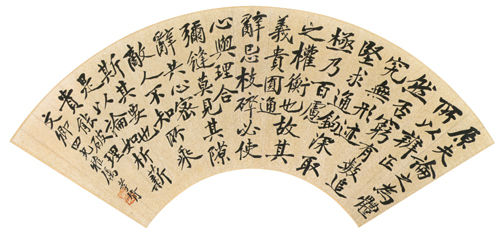 原夫論之為體
所以辨正
然否窮有數追
究無形迹
堅求通鈎深取
極乃百慮
之權衡也故其
義貴圓通
辭忌枝碎必使
心與理合
彌縫莫見其隙
辭共心密
敵人不知所乘
斯其要也
是以論如析薪
貴能破理
文卿四兄雅屬